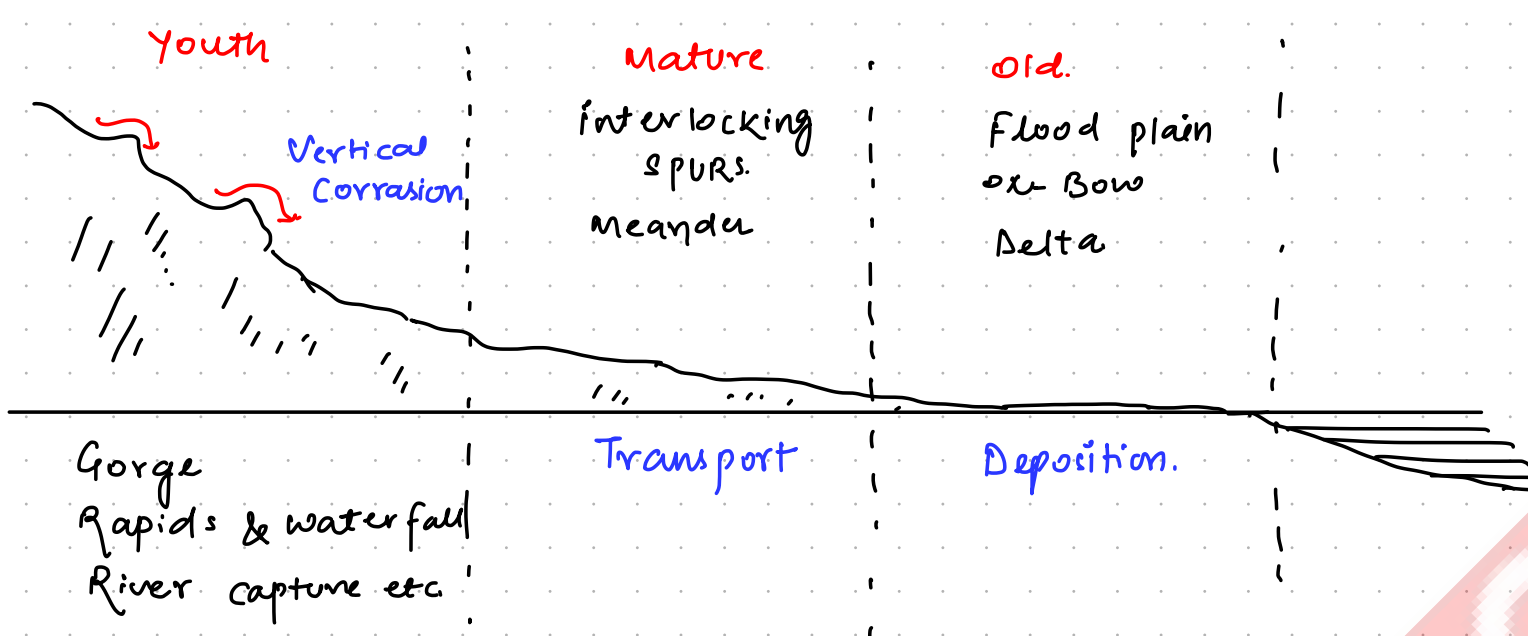 Youth
Vertical
Corrasion
Gorge
Rapids & waterfall
River capture etc
Mature
interlocking
spurs.
Meander
Transport
Old.
Flood plain
ox-Bow
Delta
Deposition.